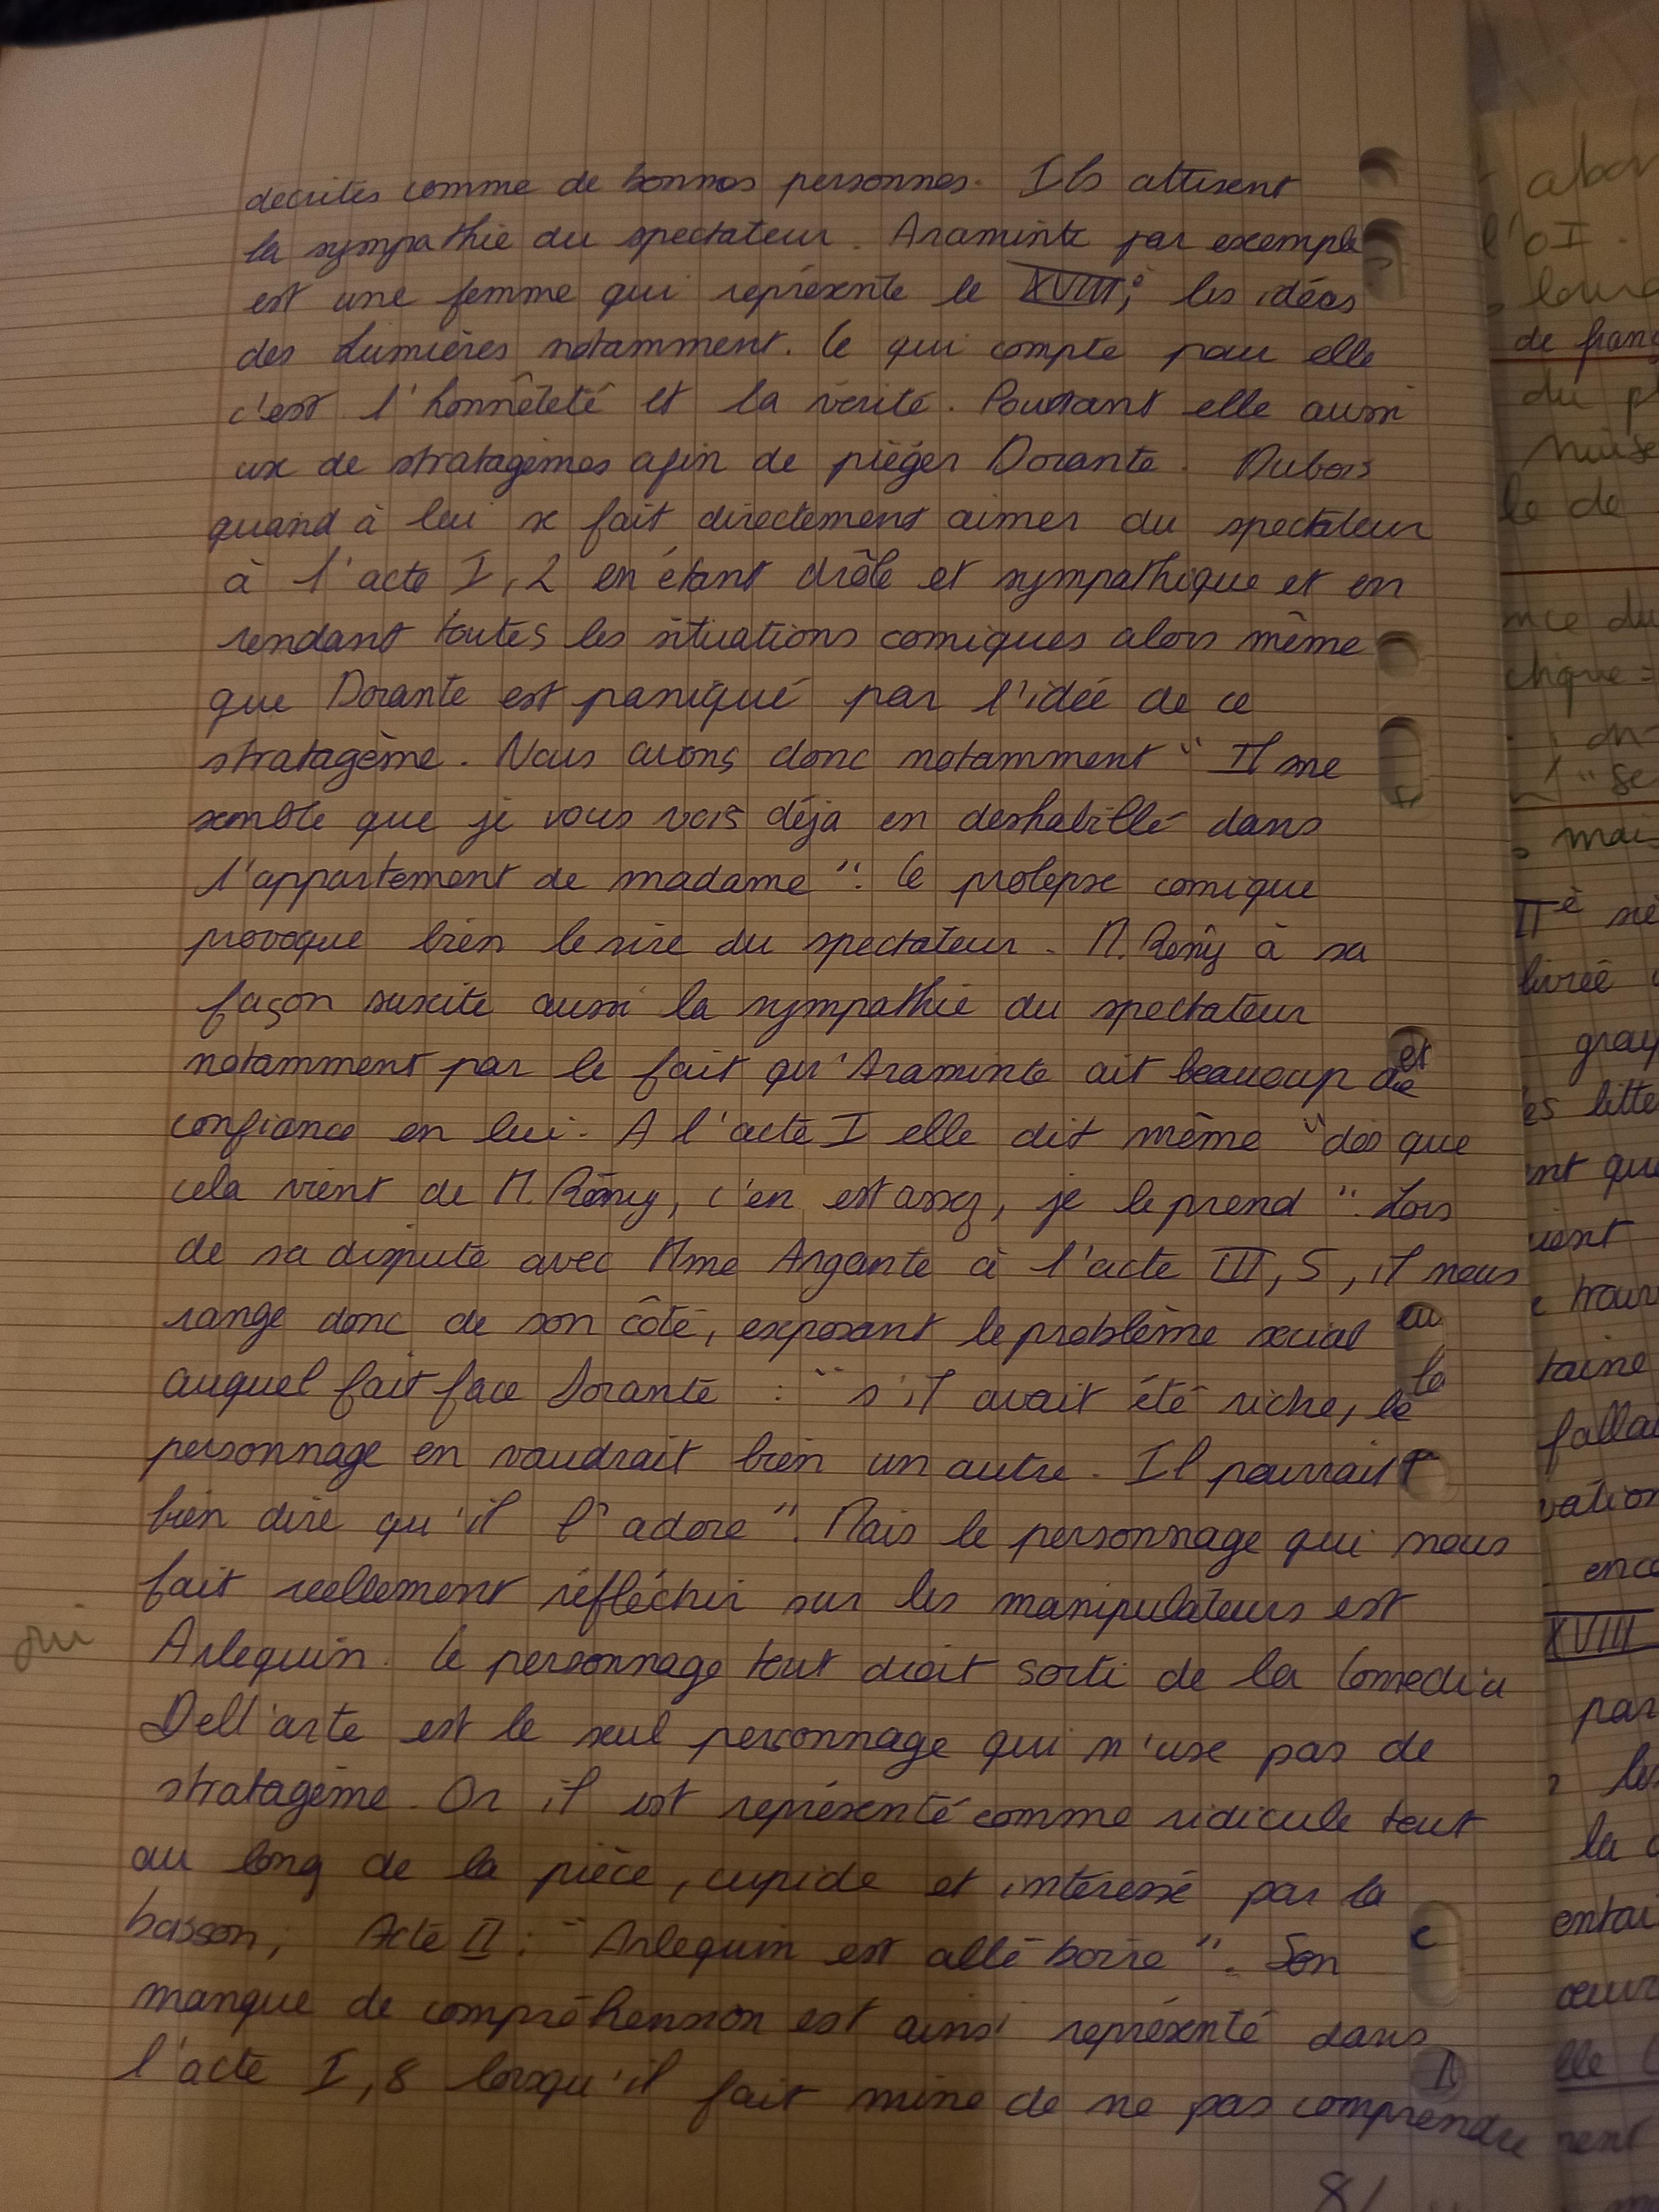 decrites comme de bonnes personnes. Ils attisent
la sympathie du spectateur. Araminte par exemple
est une femme qui représente le XVIIIè, les idées
des Lumières notamment. Ce qui compte pour elle
c'est l'honnêteté et la vérité. Pourtant elle aussi
use de stratagèmes afin de piéger Dorante. Dubois
quand à lui se fait directement aimer du spectateur
à l'acte I, 2 en étant drôle et sympathique et en
rendant toutes les situations comiques alors même
que Dorante est paniqué par l'idée de ce
stratagème. Nous avons donc notamment "Il me
semble que je vous vois déja en deshabillé dans
l'appartement de madame". Ce prolepse comique
provoque bien le rire du spectateur. M. Rémy à sa
façon suscite aussi la sympathie du spectateur
notamment par le fait qu'Araminte ait beaucoup de
confiance en lui. A l'acte I elle dit même "dès que
cela vient de M. Rémy, c'en est assez, je le prend". Lors
de sa dispute avec Mme Argante à l'acte III, 5, il nous
range donc de son côté, exposant le problème social
auquel fait face Dorante : "s'il avait été riche, le
personnage en vaudrait bien un autre. Il pourrait
bien dire qu'il l'adore". Mais le personnage qui nous
fait reellement réfléchir sur les manipulateurs est
Arlequin. Ce personnage tout droit sorti de la Comedia
Dell'arte est le seul personnage qui n'use pas de
stratagème. Or il est représenté comme ridicule tout
au long de la pièce, cupide et intéressé par la
boisson, Acte II : "Arlequin est allé boire". Son
manque de compréhension est ainsi représenté dans
l'acte I, 8 lorsqu'il fait mine de ne pas comprendre
oui
de
du
le de
nce du
mais
livrée
XVIII
par
la
8/